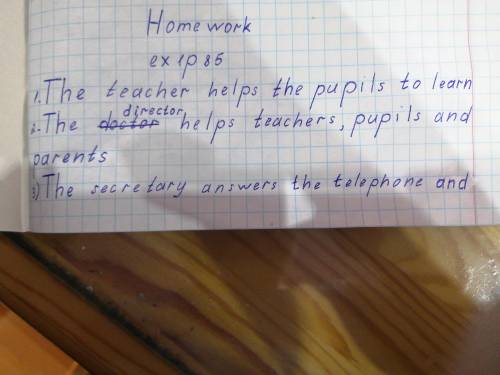 Homework
ex 1 p 85
1. The teacher helps the pupils to learn
director
2. The doctor helps teachers, pupils and
parents
3) The secretary answers the telephone and